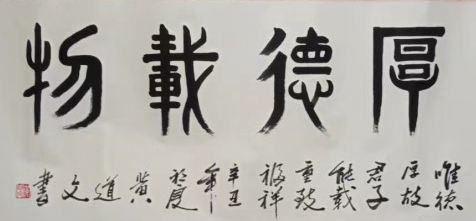 厚德載物
唯德
厚故
君子
能载
重致
福祥
辛丑
年
初夏
黄
道
文
書